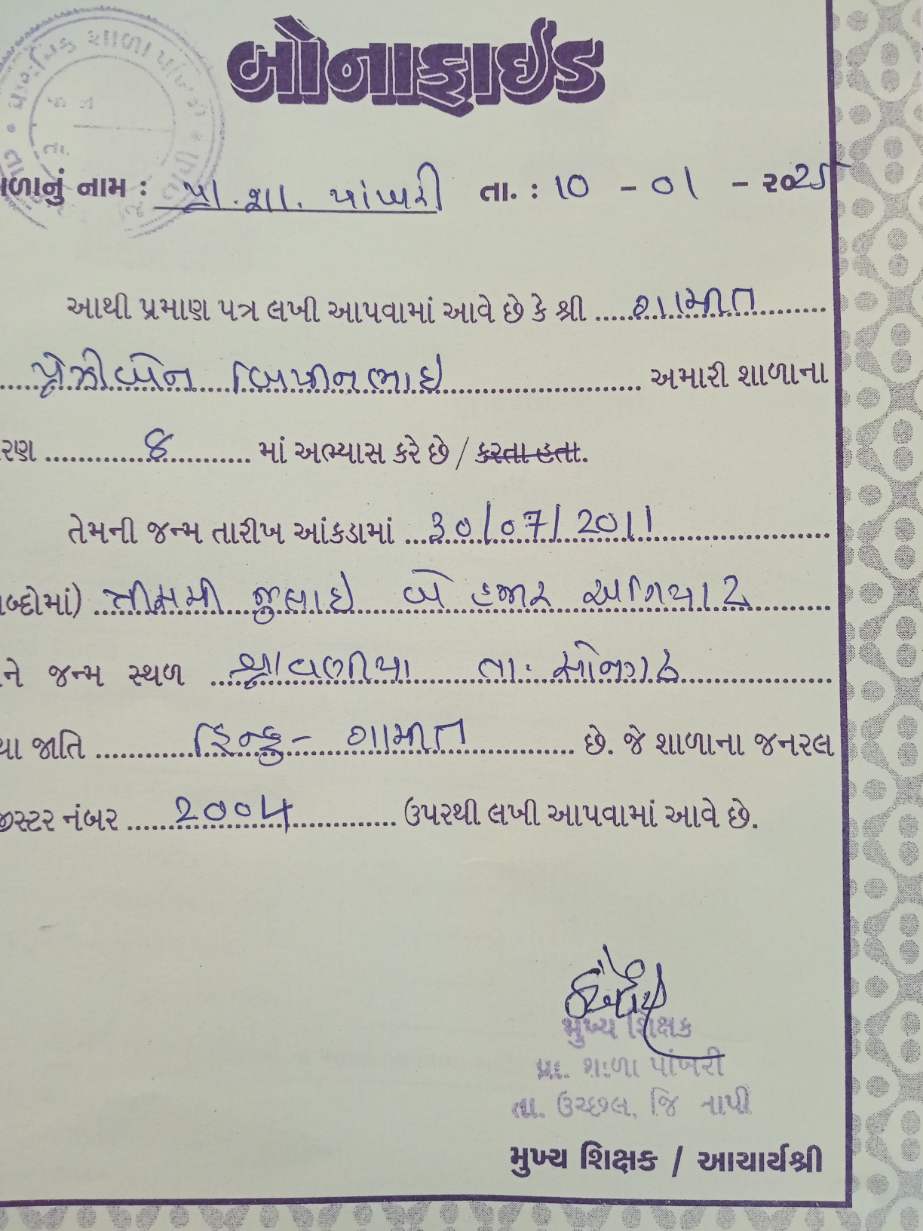 બોનાફાઈડ
પ્રાથમિક શાળા પાંખરી
તા.
ળાનું નામ : પ્રા. શા. પાંખરી તા. : 10 - 01 - ૨૦25
આથી પ્રમાણ પત્ર લખી આપવામાં આવે છે કે શ્રી ગામીત
બિપીનભાઇ અમારી શાળાના
રણ 8 માં અભ્યાસ કરે છે / કરતા હતા.
તેમની જન્મ તારીખ આંકડામાં 30/07/2011
બ્દોમાં) ત્રીસમી જુલાઇ બે હજાર અગિયાર
ને જન્મ સ્થળ શ્રાવણીયા તા. સોનગઢ
થા જાતિ હિન્દુ - ગામીત છે. જે શાળાના જનરલ
જીસ્ટર નંબર 2004 ઉપરથી લખી આપવામાં આવે છે.
મુખ્ય શિક્ષક
પ્રા. શાળા પાંખરી
તા. ઉચ્છલ, જિ તાપી
મુખ્ય શિક્ષક / આચાર્યશ્રી